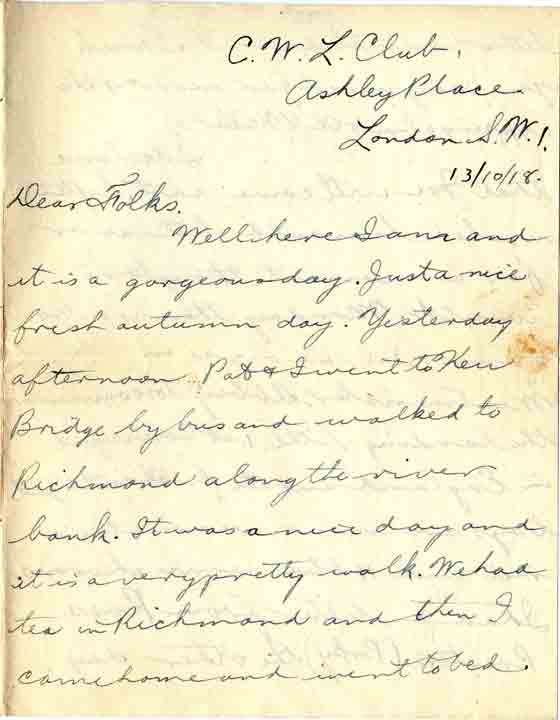 C. W. L. Club,
Ashley Place
London S. W. 1.
13/10/18.
Dear Folks.
Well here I am and
it is a gorgeous day. Just a nice
fresh autumn day. Yesterday
afternoon Pat & I went to Kew
Bridge by bus and walked to
Richmond along the river
bank. It was a nice day and
it is a very pretty walk. We had
tea in Richmond and then I
came home and went to bed.